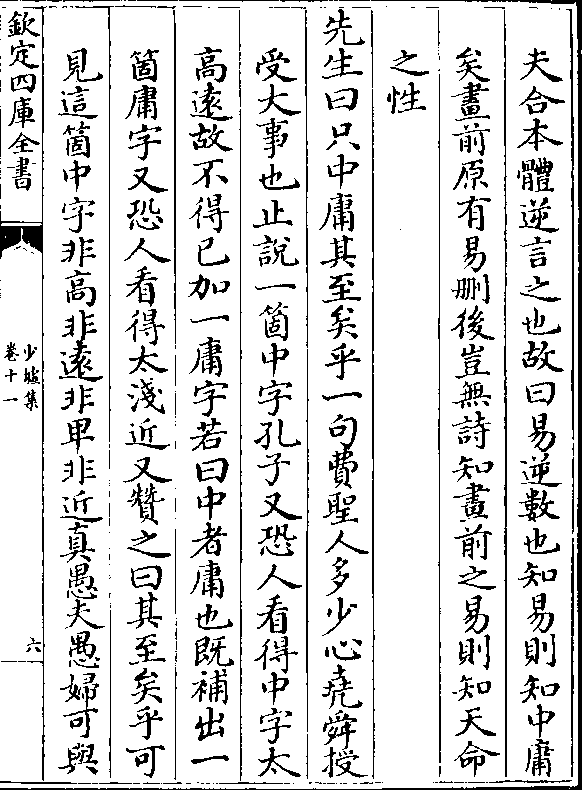 夫合本體逆言之也故曰易逆數也知易則知中庸
矣畫前原有易刪後豈無詩知畫前之易則知天命
之性
先生曰只中庸其至矣乎一句費聖人多少心堯舜授
受大事也止說一箇中字孔子又恐人看得中字太
高遠故不得已加一庸字若曰中者庸也既補出一
箇庸字又恐人看得太淺近又贊之曰其至矣乎可
見這箇中字非高非遠非卑非近真愚夫愚婦可與
欽定四庫全書
少墟集
卷十一
六